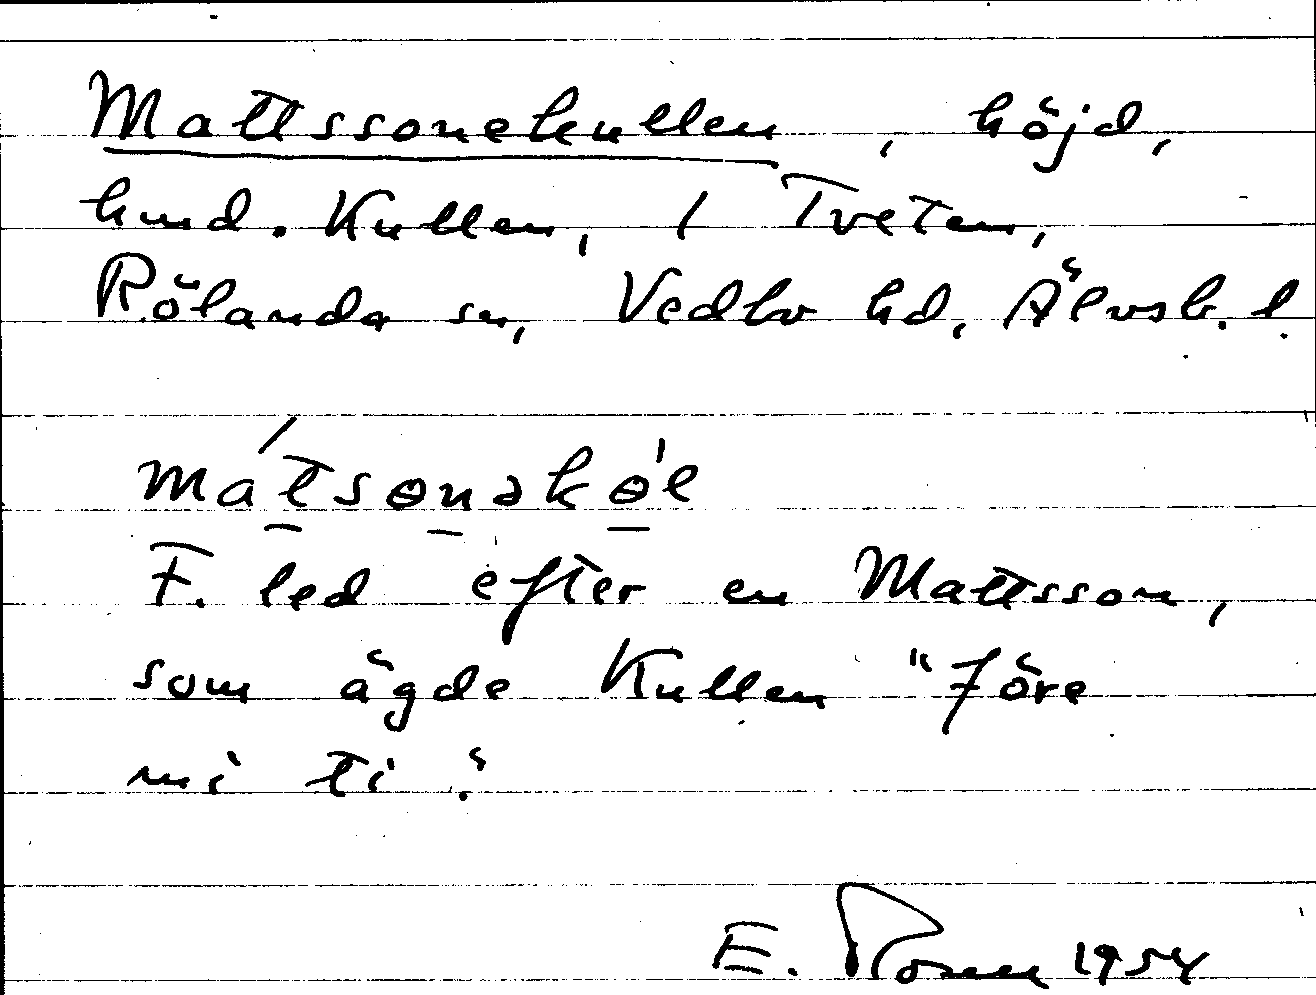 Mattssonekullen, höjd,
hmd. Kullen, 1 Tveten,
Rölanda sn, Vedbo hd, Älvsb. l.
mátsɵnəkɵ'l
F. led efter en Mattsson,
som ägde Kullen "före
mi ti."
E. 1954